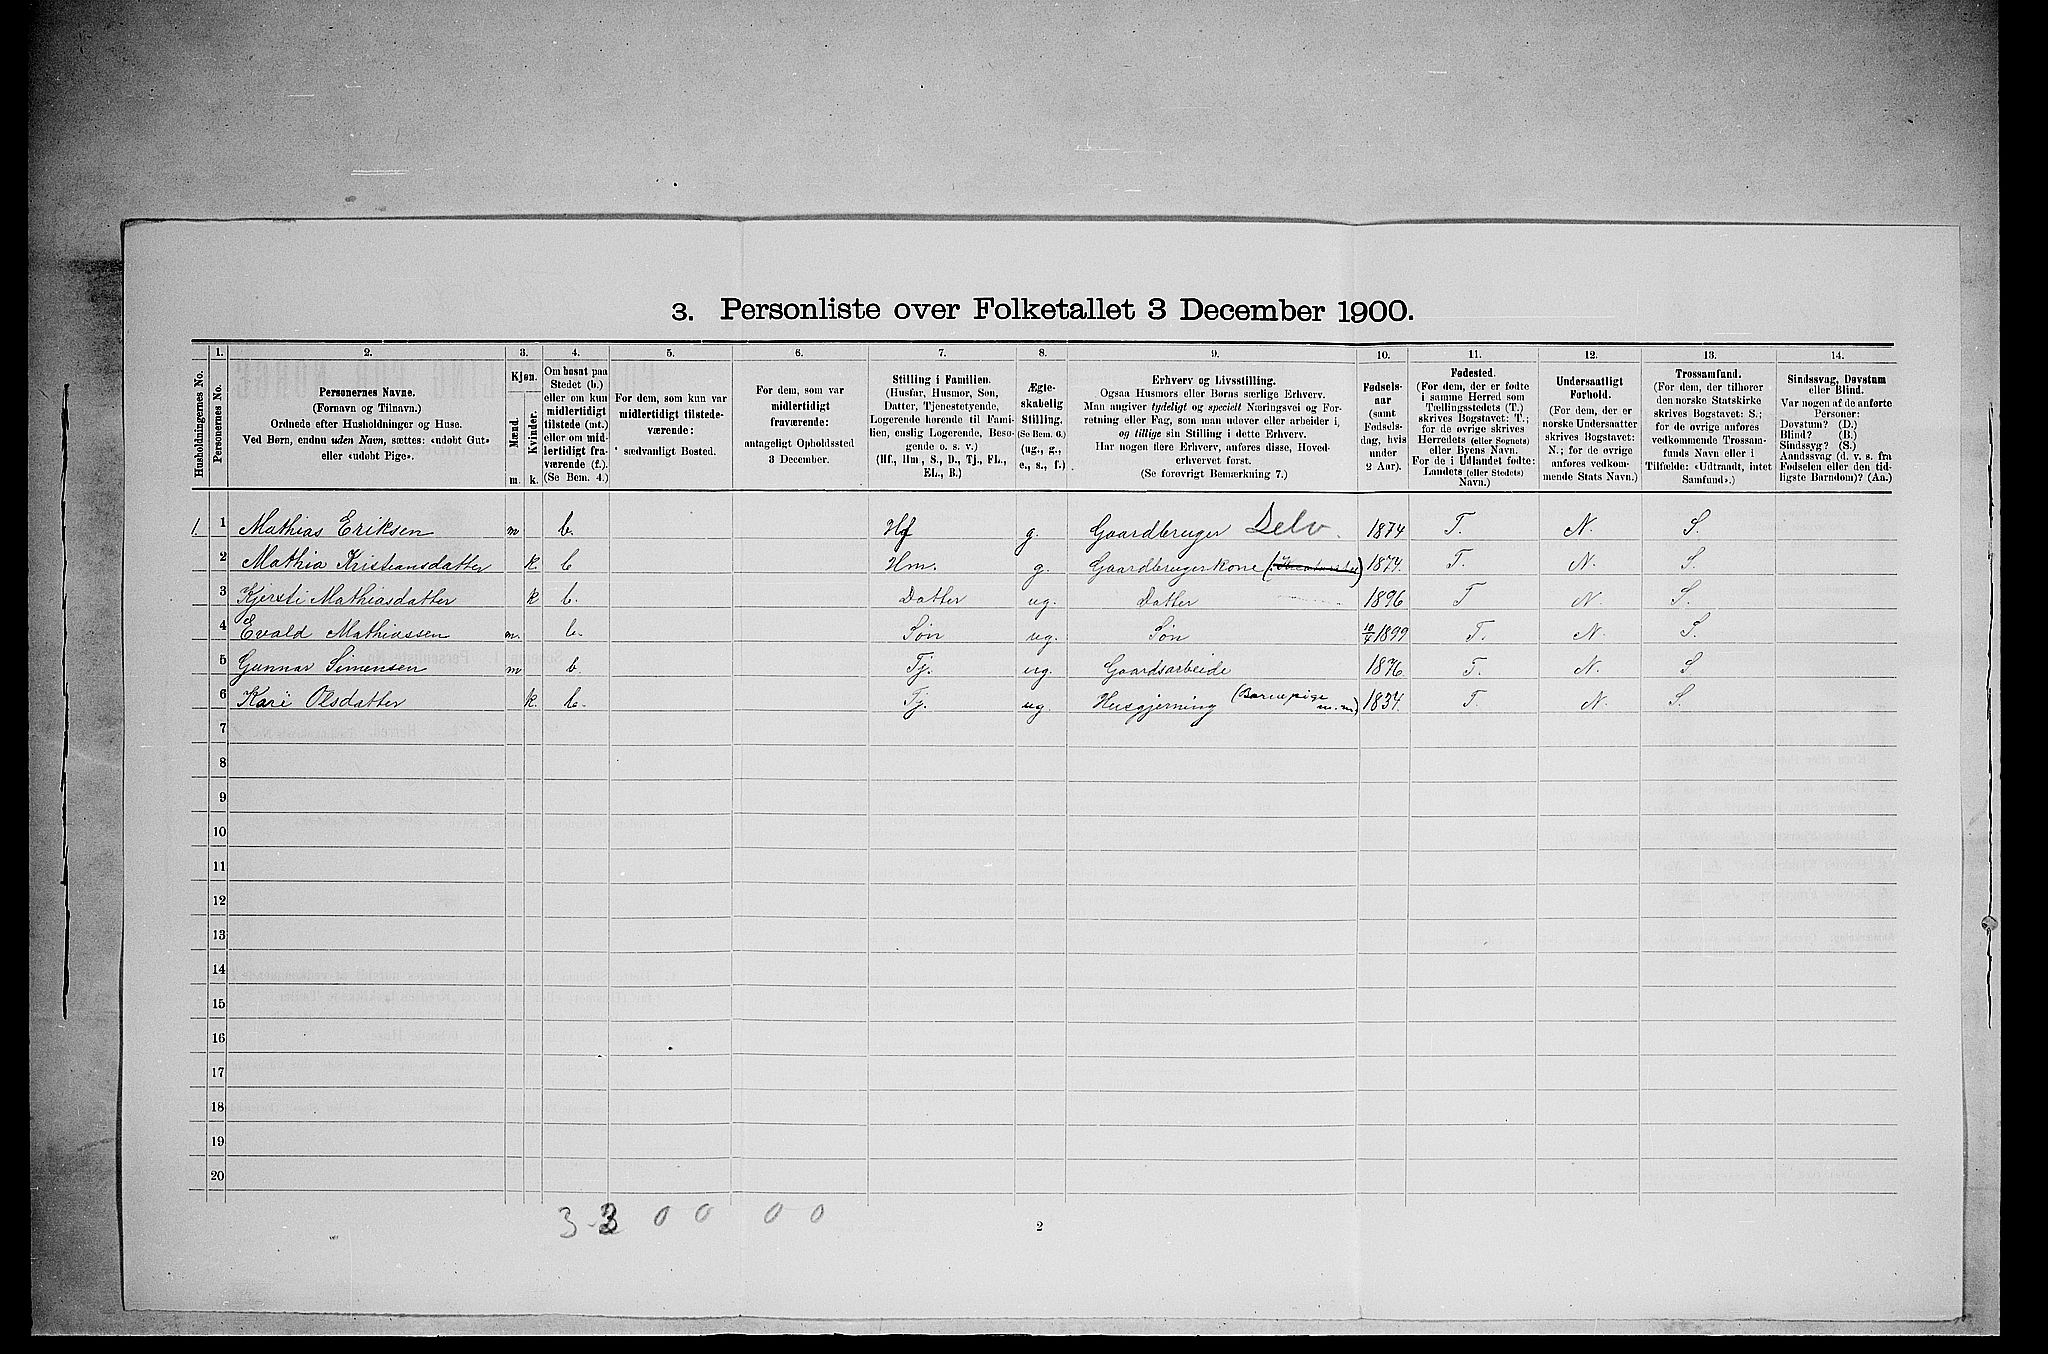 3. Personliste over Folketallet 3 December 1900.
Husholdningernes No.
1.
Personernes No.
2.
Personernes Navne.
(Fornavn og Tilnavn.)
Ordnede efter Husholdninger og Huse.
Ved Børn, endnu uden Navn, sættes: «udøbt Gut»
eller «udøbt Pige».
3.
Kjøn.
Mænd.
m.
Kvinder.
k.
4.
Om bosat paa
Stedet (b.)
eller om kun
midlertidigt
tilstede (mt.)
eller om mid-
lertidigt fra-
værende (f.).
(Se Bem. 4.)
5.
For dem, som kun var
midlertidigt tilstede-
værende:
sædvanligt Bosted.
6.
For dem, som var
midlertidigt
fraværende:
antageligt Opholdssted
3 December.
7.
Stilling i Familien.
(Husfar, Husmor, Søn,
Datter, Tjenestetyende,
Logerende hørende til Fami-
lien, enslig Logerende, Besø-
gende o. s. v.)
(Hf., Hm., S., D., Tj., FL.,
EL., B.)
8.
Ægte-
skabelig
Stilling.
(Se Bem. 6.)
(ug., g.,
e., s., f.)
9.
Erhverv og Livsstilling.
Ogsaa Husmors eller Børns særlige Erhverv.
Man angiver tydeligt og specielt Næringsvei og For-
retning eller Fag, som man udøver eller arbeider i,
og tillige sin Stilling i dette Erhverv.
Har nogen flere Erhverv, anføres disse, Hoved-
erhvervet først.
(Se forøvrigt Bemærkning 7.)
10.
Fødsels-
aar
(samt
Fødsels-
dag, hvis
under
2 Aar).
11.
Fødested.
(For dem, der er fødte
i samme Herred som
Tællingsstedets (T.)
skrives Bogstavet: T.;
for de øvrige skrives
Herredets (eller Sognets)
eller Byens Navn.
For de i Udlandet fødte:
Landets (eller Stedets)
Navn.)
12.
Undersaatligt
Forhold.
(For dem, der er
norske Undersaatter
skrives Bogstavet:
N.; for de øvrige
anføres vedkom-
mende Stats Navn.)
13.
Trossamfund.
(For dem, der tilhører
den norske Statskirke
skrives Bogstavet: S.;
for de øvrige anføres
vedkommende Trossam-
funds Navn eller i
Tilfælde: «Udtraadt, intet
Samfund».)
14.
Sindssvag, Døvstum
eller Blind.
Var nogen af de anførte
Personer:
Døvstum? (D.)
Blind? (B.)
Sindssyg? (S.)
Aandssvag (d. v. s. fra
Fødselen eller den tid-
ligste Barndom)? (Aa.)
1. 1 Mathias Eriksen m b. Hf g. Gaardbruger Selv. 1874 T. N. S.
2 Mathia Kristiansdatter k. b Hm. g. Gaardbrugerkone 1874. T. N. S.
3 Kjersti Mathiasdatter k b. Datter ug. Datter 1896 T N. S.
4 Evald Mathiassen m. b. Søn ug. Søn 10/4 1899 T. N. S.
5 Gunnar Simensen m b. Tj. ug. Gaardsarbeide 1876 T. N. S
6 Kari Olsdatter k. b. Tj. ug. Husgjerning (Barnepige m.m.) 1834. T. N. S.
7
8
9
10
11
12
13
14
15
16
17
18
19
20
3 3 0 0 0 0
2